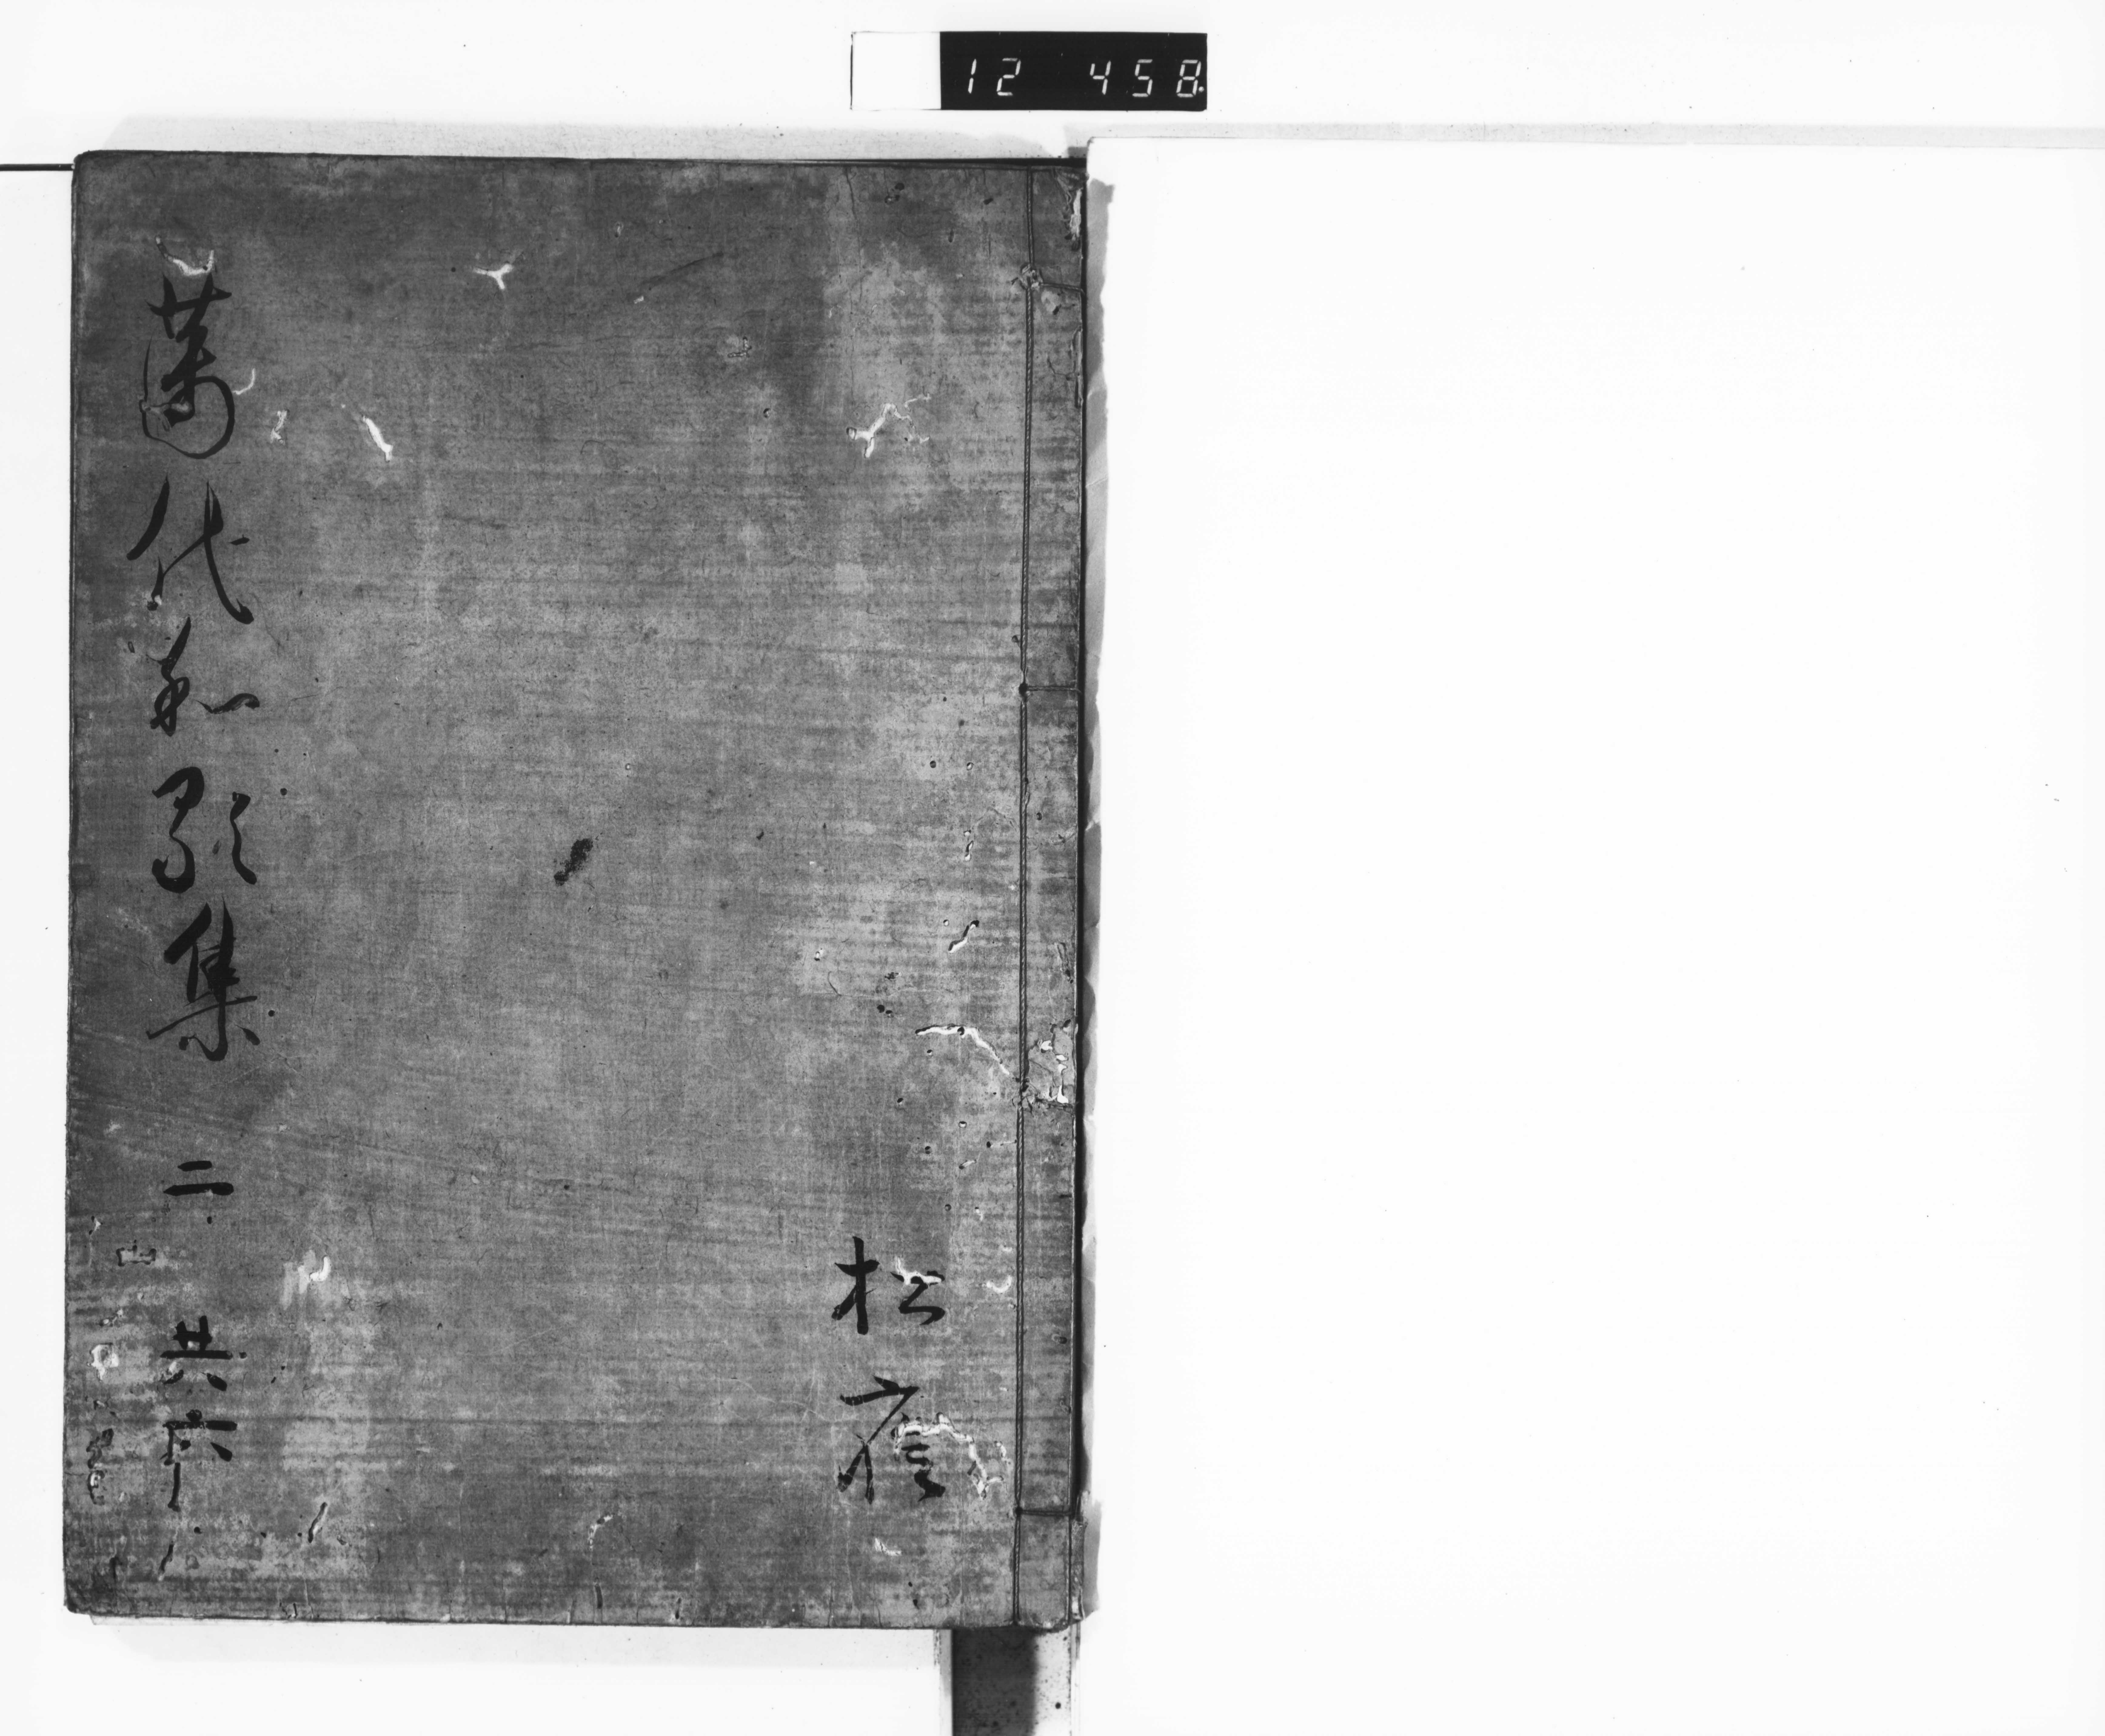 12 458
松庵
萬代和歌集 二 共六